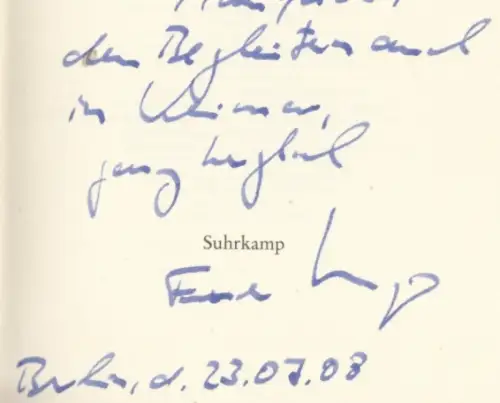 dem Begleiter auch
in Weimar,
ganz herzlich
Suhrkamp
Berlin, d. 23.07.08